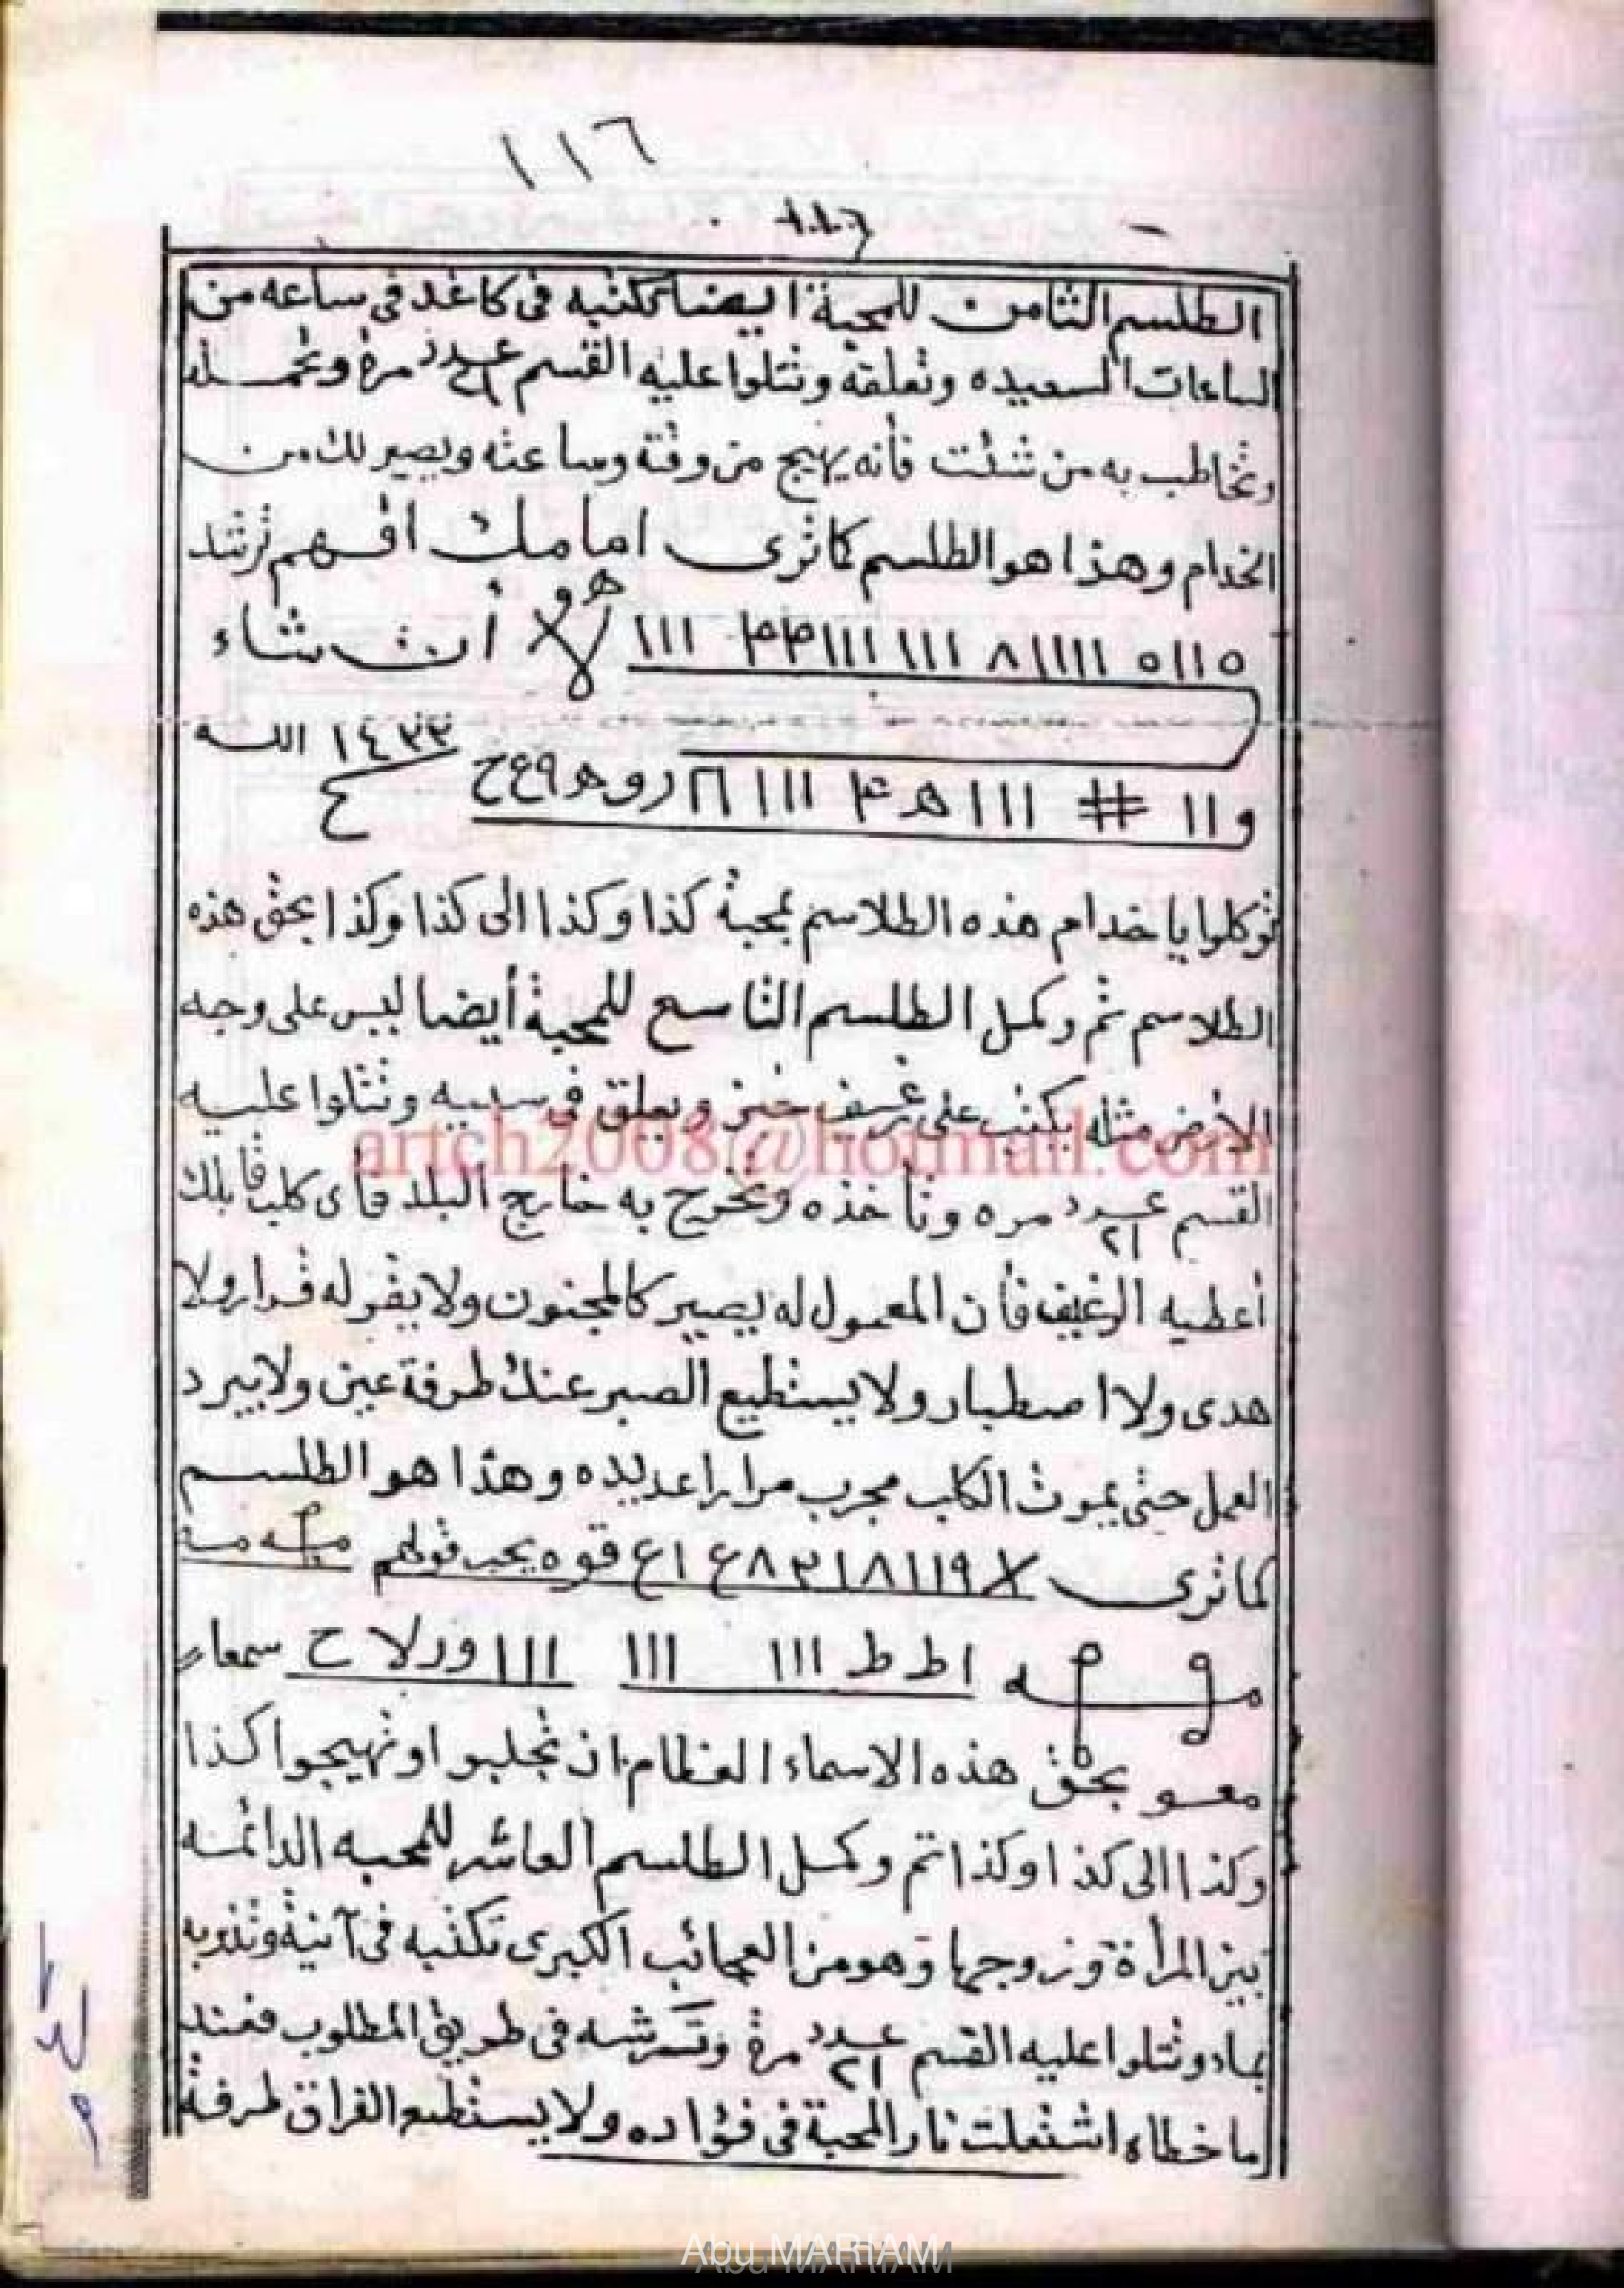 ١١٦
الطلسم الثامن للمحبة ايضا تكتبه فى كاغد فى ساعه من
الساعات السعيده وتعلقه وتتلوا عليه القسم عدد ٢١ مرة وتحمله
وتخاطب به من شئت فأنه يهيج من وقته وساعته ويصير لك من
الخدام وهذا هو الطلسم كما ترى امامك افهم ترشد
١١١ ١١١ ان شاء
١٤٣٣ الله
و١١ # ١١١ ١١١
توكلوا يا خدام هذه الطلاسم بمحبة كذا وكذا الى كذا وكذا بحق هذه
الطلاسم تم وكمل الطلسم التاسع للمحبة أيضا ليس على وجه
الارض مثله يكتب على رغيف خبز ويعلق فى سيبه وتتلوا عليه
artch2008@hotmail.com
القسم عدد ٢١ مره وتأخذه وتخرج به خارج البلد فأى كلب قابلك
أعطيه الرغيف فأن المعمول له يصير كالمجنون ولا يقر له قرار ولا
هدى ولا اصطبار ولا يستطيع الصبر عنك طرفة عين ولا يبرد
العمل حتى يموت الكلب مجرب مرارا عديده وهذا هو الطلسم
كما ترى
اط ط ١١١ ١١١ ١١١
بحق هذه الاسماء العظام ان تجلبوا وتهيجوا كذا
وكذا الى كذا وكذا تم وكمل الطلسم العاشر للمحبه الدائمه
بين المرأة وزوجها وهو من العجائب الكبرى تكتبه فى آنية وتذوبه
بماء وتتلوا عليه القسم عدد ٢١ مرة وترشه فى طريق المطلوب فعند
ما خطاه اشتعلت نار المحبة فى فؤاده ولا يستطع الفراق طرفة
Abu MARIAM